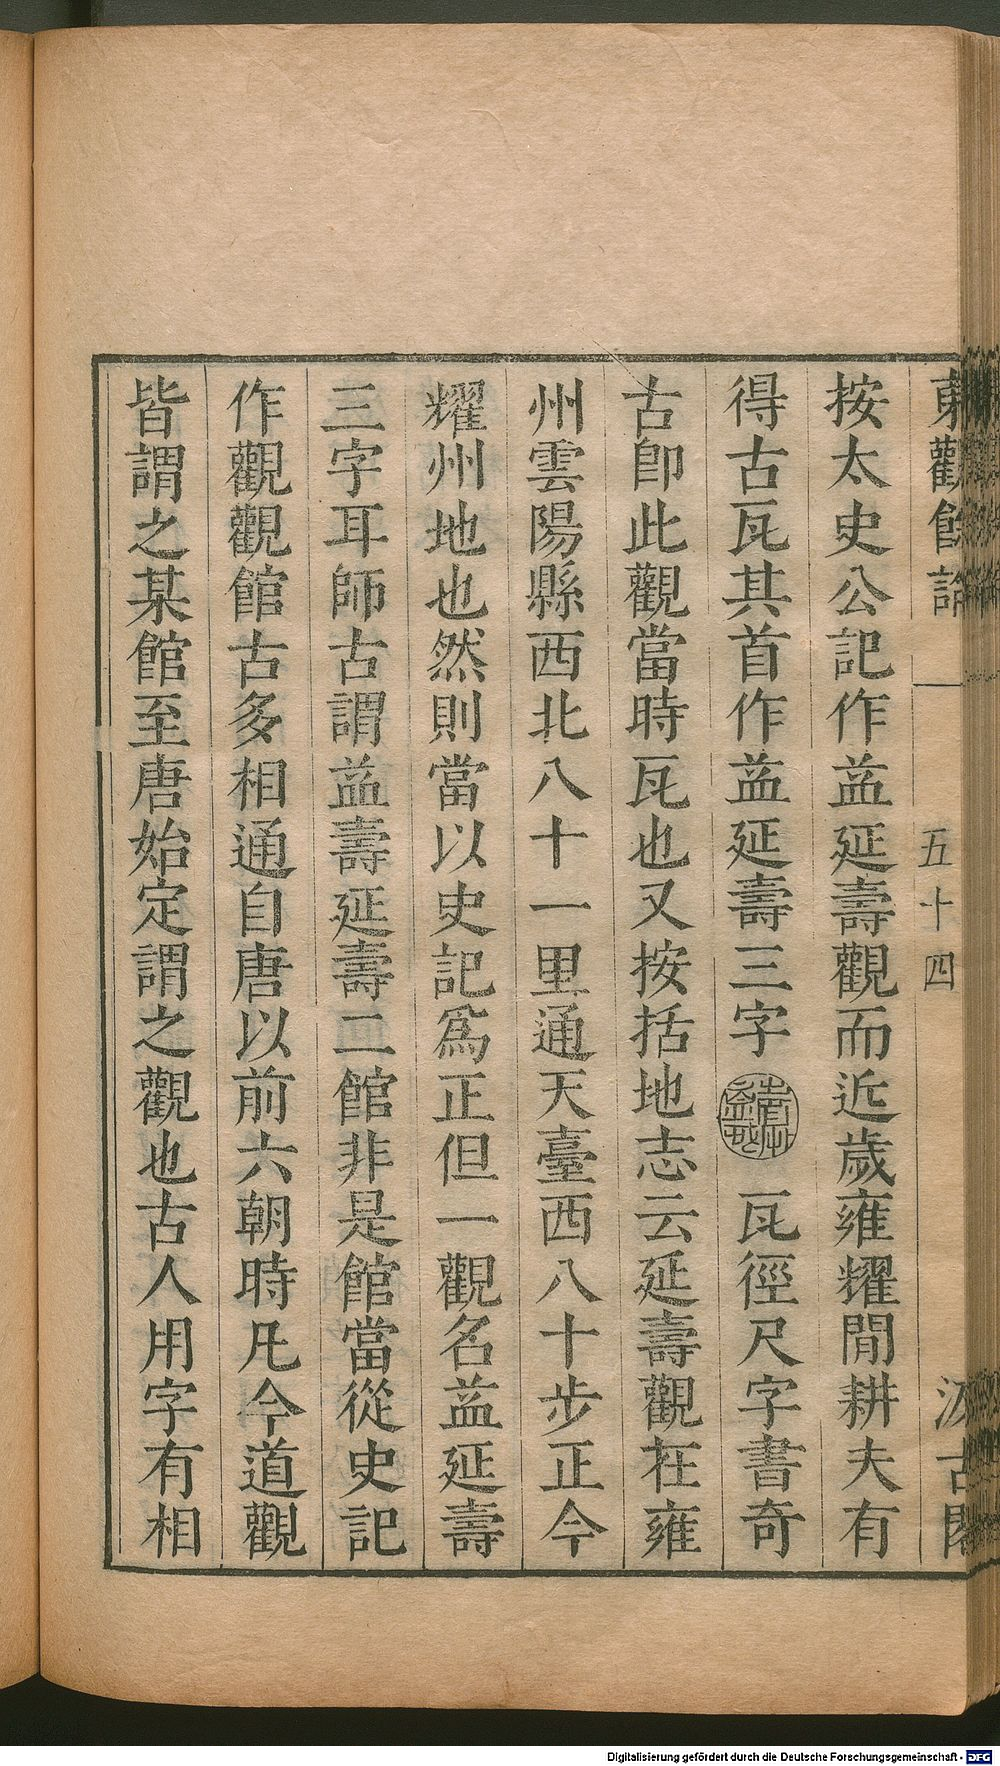 東觀餘論
五十四
汲古閣
按太史公記作益延壽觀而近歲雍耀閒耕夫有
得古瓦其首作益延壽三字
瓦徑尺字書奇
古卽此觀當時瓦也又按括地志云延壽觀在雍
州雲陽縣西北八十一里通天臺西八十步正今
耀州地也然則當以史記爲正但一觀名益延壽
三字耳師古謂益壽延壽二館非是館當從史記
作觀觀館古多相通自唐以前六朝時凡今道觀
皆謂之某館至唐始定謂之觀也古人用字有相
Digitalisierung gefördert durch die Deutsche Forschungsgemeinschaft - DFG